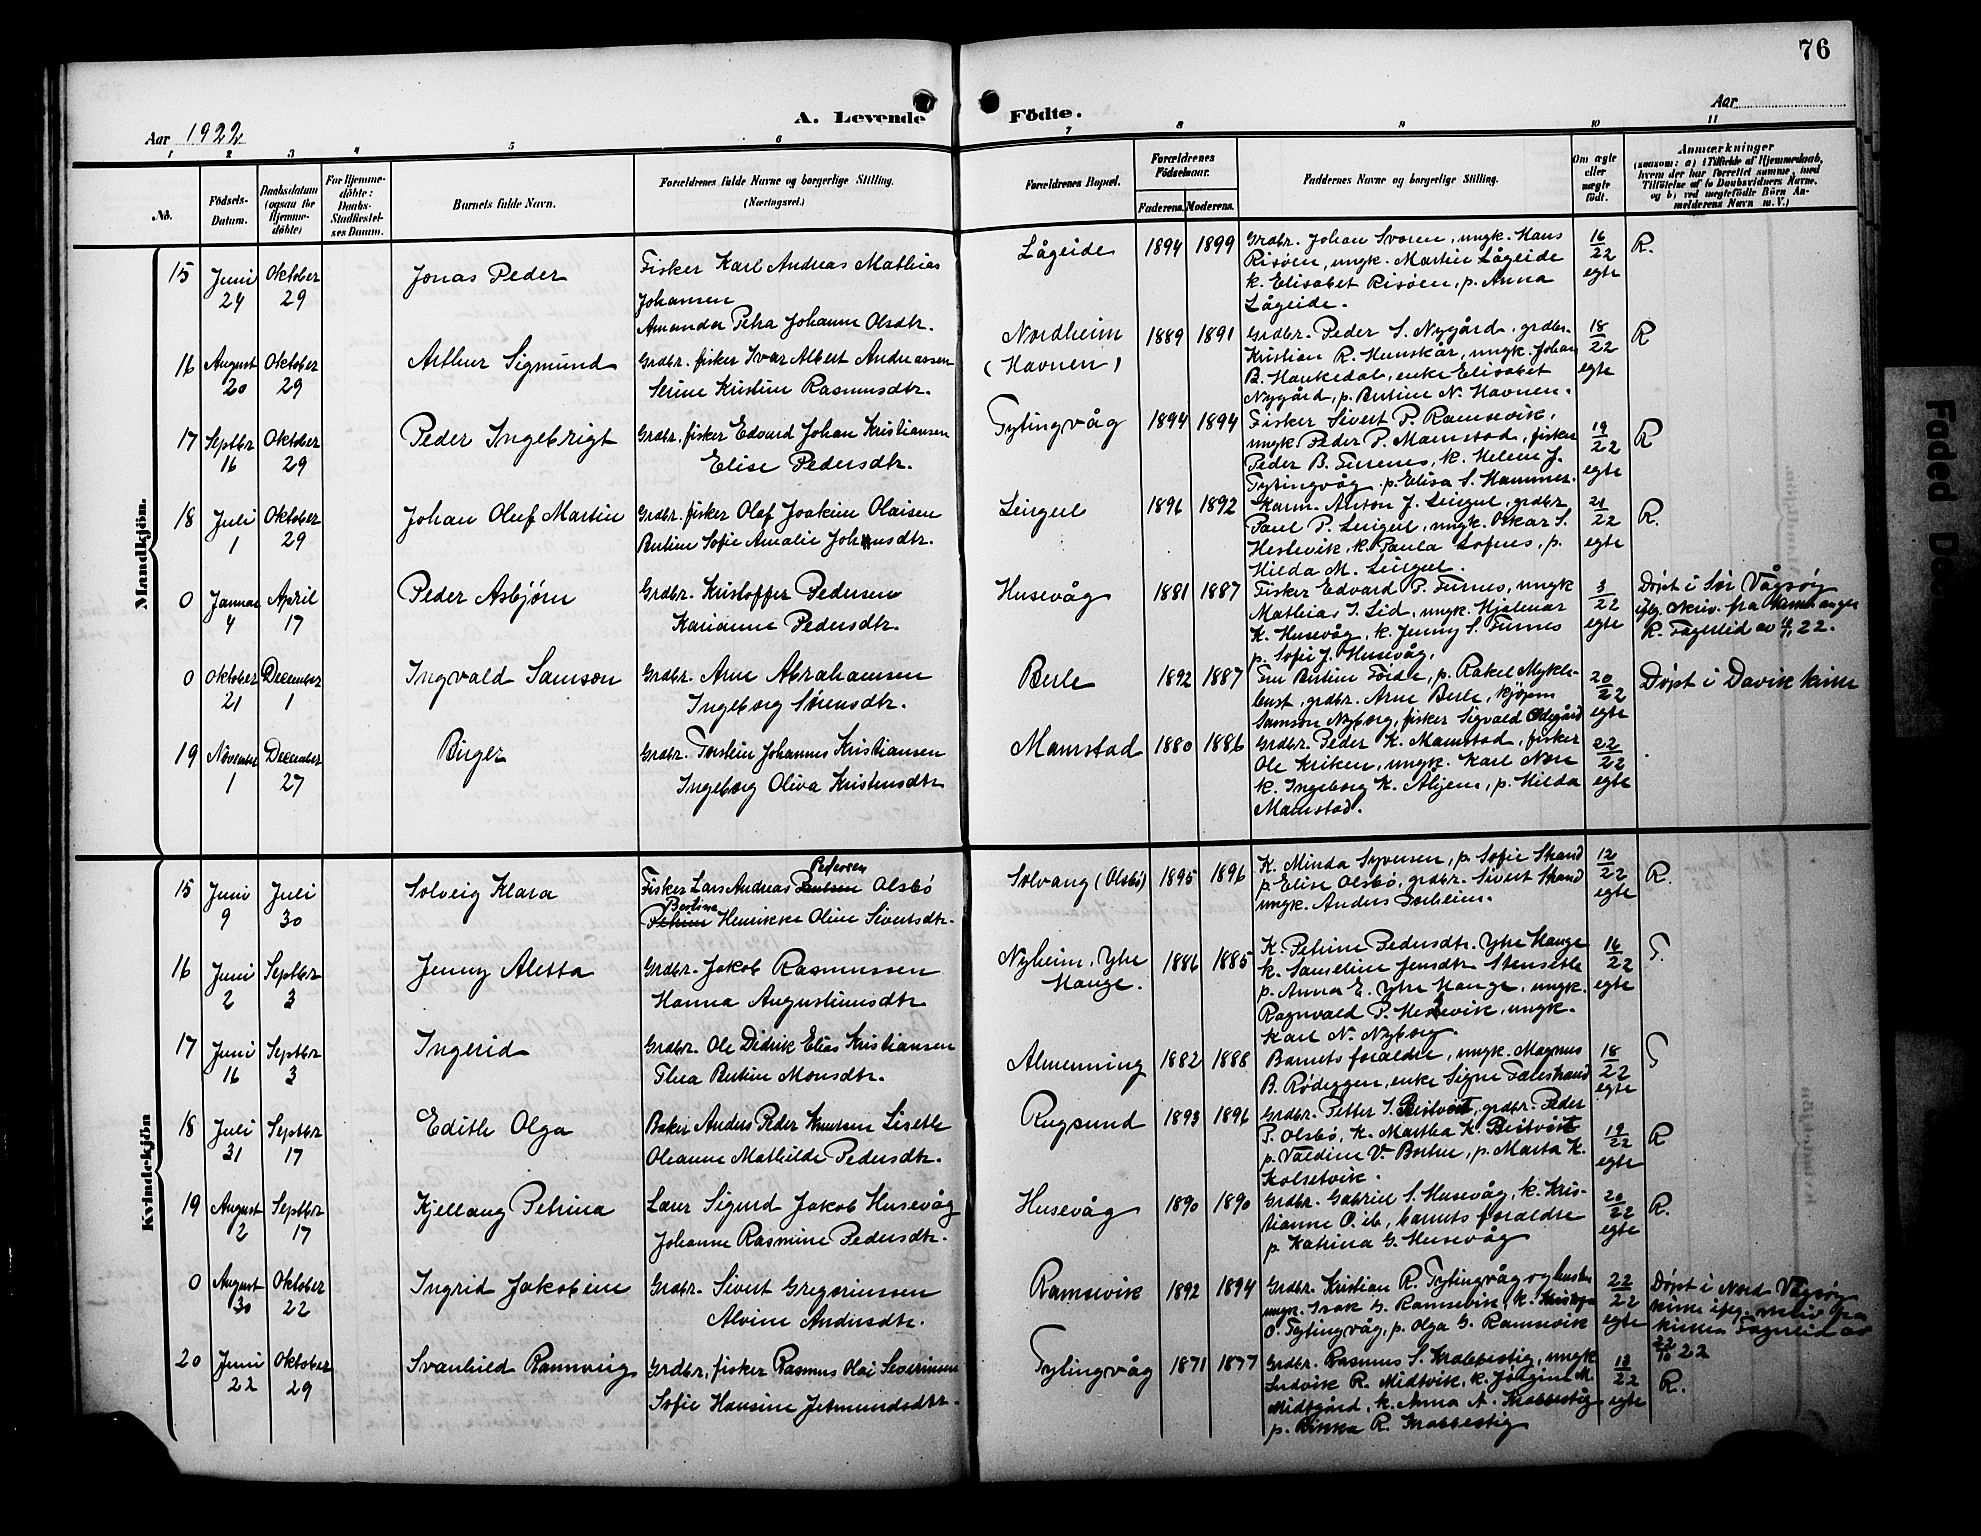 76
A. Levende Födte.
Aar 1922
Aar
1 2 3 4 5 6 7 8 9 10 11
No.
Födsels-
Datum.
Daabsdatum
(ogsaa for
Hjemme-
döbte)
For Hjemme-
döbte:
Daabs-
Stadfæstel-
ses Datum.
Barnets fulde Navn.
Forældrenes fulde Navne og borgerlige Stilling.
(Næringsvei.)
Forældrenes Bopæl.
Forældrenes
Födselsaar.
Faderens. Moderens.
Faddernes Navne og borgerlige Stilling.
Om ægte
eller
uægte
födt.
Anmærkninger
(saasom: a) i Tilfælde af Hjemmedaab,
hvem der har forrettet samme, med
Tilföielse af to Daabsvidners Navne,
og b) ved uægtefödte Börn An-
melderens Navn m. V.)
Mandkjön.
15 Juni 24 Oktober 29 Jonas Peder
Fisker Karl Andreas Mathias
Johansen
Amanda Petra Johanne Olsdtr.
Lågeide 1894 1899
Grdbr. Johan Svoren, ungk. Hans
Risöen, ungk. Martin Lågeide
k. Elisabet Risöen, p. Anna
Lågeide.
16/22 egte R.
16 August 20 Oktober 29 Arthur Sigmund
Grdbr. fisker Ivar Albert Andreassen
Serine Kristine Rasmusdtr.
Nordheim
(Havnen) 1889 1891
Grdbr. Peder S. Nygård, grdbr.
Kristian R. Humskår, ungk. Johan
B. Haukedal, enke Elisabet
Nygård, p. Bertine N. Havnen.
18/22 egte R
17 Septbr 16 Oktober 29 Peder Ingebrigt
Grdbr. fisker Edvard Johan Kristiansen
Elise Pedersdtr.
Tytingvåg 1894 1894
Fisker Sivert P. Ramsevik,
ungk. Peder P. Mamstad, fisker
Peder B. Furenes, k. Helene J.
Tytingvåg. p. Elisa S. Hammer.
19/22 egte R
18 Juli 1 Oktober 29 Johan Oluf Martin
Grdbr. fisker Olaf Joakim Olaisen
Bertine Sofie Amalie Johansdtr.
Leirgul 1896 1892
Anton J. Leirgul, grdbr
Paul P. Leirgul, ungk. Oskar S.
Hestevik, k. Paula Lofnes, p.
Hilda M. Leirgul.
21/22 egte R.
0 Januar 4 April 17 Peder Asbjörn
Grdbr. Kristoffer Pedersen
Karianne Pedersdtr.
Husevåg 1881 1887
Fisker Edvard P. Furnes, ungk
Mathias I. Lid, ungk. Hjalmar
K. Husevåg, k. Jenny S. Furnes
p. Sofie J. Husevåg.
3/22 egte
Døpt i Sør Vågsøy
iflg. skriv. fra
k. Fagerlid av 22.
0 Oktober 21 December 1 Ingvald Samson
Grdbr. Arne Abrahamsen
Ingeborg Sörensdtr.
Berle 1892 1887
Fru Bertine Föide, p. Rakel Mykle-
bust, grdbr. Arne Berle, kjøpm
Samson Nyborg, fisker Sigvald Ødegård
20/22 egte
Døpt i Davik kirke
19 November 1 December 27 Birger
Grdbr. Torstein Johannes Kristiansen
Ingeborg Oliva Kristensdtr
Mamstad 1880 1886
Grdbr. Peder K. Mamstad, fisker
Ole Kriken, ungk. Karl Nore
k. Ingeborg K. Aljem, p. Hilda
Mamstad.
22/22 egte
Kvindekjön
15 Juni 9 Juli 30 Solveig Klara
Pedersen
Fisker Lars Andreas Paulsen Olsbö
Bertine
Petrine Henrikke Oline Sivertsdtr.
Solvang (Olsbö) 1895 1896
K. Minda Syversen, p. Sofie Strand
p. Elise Olsbö, grdbr. Sivert Strand
ungk. Anders
12/22 egte R.
16 Juni 2 Septbr 3 Jenny Aletta
Grdbr. Jakob Rasmussen
Hanna Augustinusdtr
Nyheim, Ytre
Hauge. 1886 1885
K. Petrine Pedersdtr. Ytre Hauge
k. Sanseline Jensdtr Stensetle
p. Anna E. Ytre Hauge, ungk.
Ragnvald P. Hestevik, ungk.
Karl N. Nyborg.
16/22 egte T.
17 Juni 16 Septbr 3 Ingerid
Grdbr. Ole Didrik Elias Kristiansen
Thea Bertine Monsdtr.
Almenning 1882 1888
Barnets foraldre, ungk. Magnus
B. Rödeggen, enke Signe
18/22 egte T
18 Juli 31 Septbr 17 Edith Olga
Baker Anders Peder Knutsen Lisetle
Oleanne Mathilde Pedersdtr.
Rugsund 1893 1896
Grdbr. Petter I. Beitveit, grdbr. Peder
P. Olsbö, k. Martha K. Beitveit
p. Valdine V. p. Marta K.
Kolsetvik.
19/22 egte R
19 August 2 Septbr 17 Kjellaug Petrina
Lærer Sigurd Jakob Husevåg
Johanne Rasmine Pedersdtr.
Husevåg 1890 1890
Grdbr. Gabriel S. Husevåg, k. Kris-
tianne O. ib, barnets foraldre
p. Katrina G. Husevåg
20/22 egte R.
0 August 30 Oktober 22 Ingrid Jakobine
Grdbr. Sivert Gregoriussen
Alvine Andersdtr.
Ramsevik 1892 1894
Grdbr. Kristian R. Tytingvåg og hustru
ungk. Isak G. Ramsevik, k.
O. Tytingvåg, p. Olga G. Ramsevik
22/22 egte
Døpt i Nord Vågsøy
kirke iflg. fra
kirkes. Fagerlid av
22/10 22
20 Juni 22 Oktober 29 Svanhild Rannveig
Grdbr, fisker Rasmus Olai Severinsen
Sofie Hansine Jetmundsdtr.
Tytingvåg 1871 1877
Grdbr. Rasmus S. Krabbestig, ungk
Ludvik R. Midtvik, k. Jörgine M.
Midtgård, k. Anna A. Krabbestig
p. Rikka R. Krabbestig
13/22 egte R.
Faded Doc